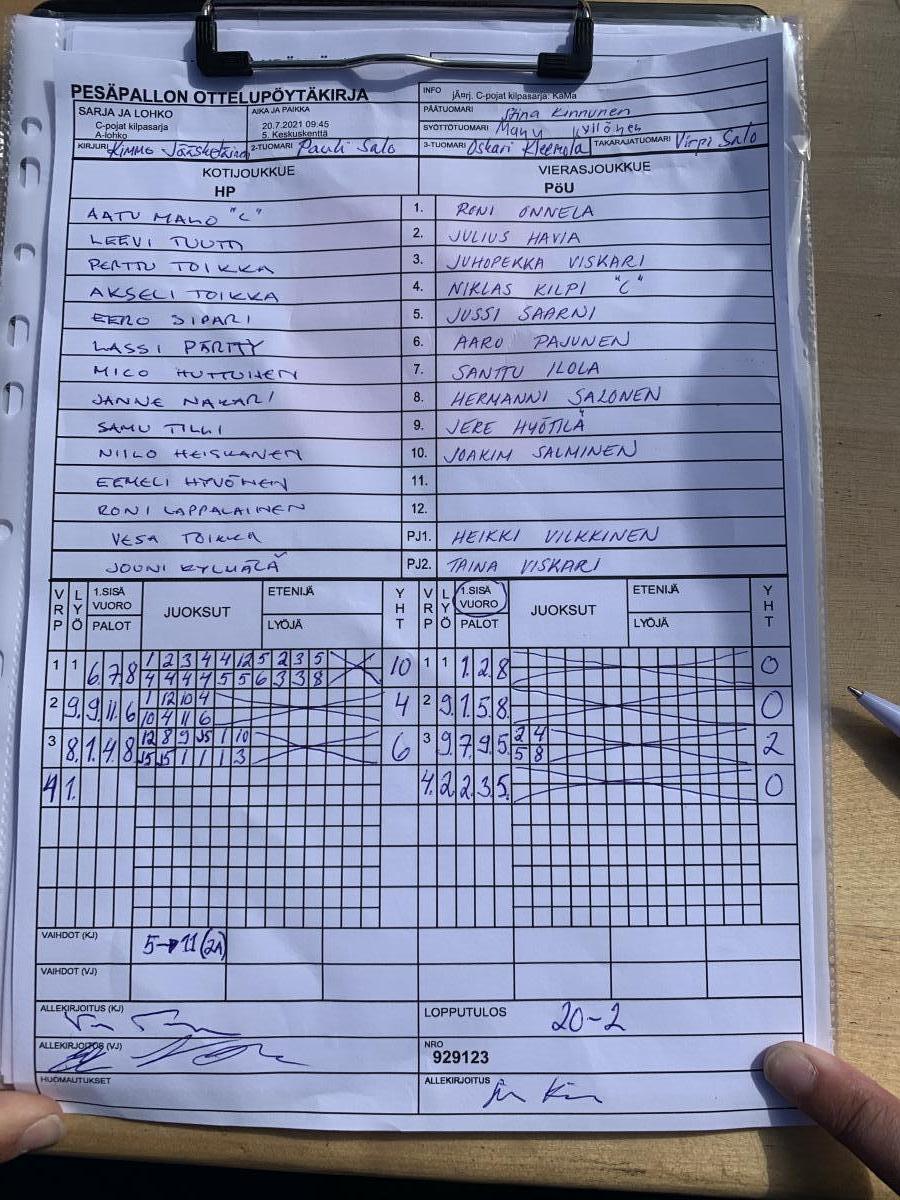 PESÄPALLON OTTELUPÖYTÄKIRJA
INFO jÄ¤rj. C-pojat kilpasarja: KaMa
SARJA JA LOHKO
C-pojat kilpasarja
A-lohko
AIKA JA PAIKKA
20.7.2021 09:45
5. Keskuskenttä
PÄÄTUOMARI Stina Kinnunen
SYÖTTÖTUOMARI Manu Kylönen
KIRJURI Kimmo Jääskeläinen
2-TUOMARI Pauli Salo
3-TUOMARI Oskari Kleemola
TAKARAJATUOMARI Virpi Salo
KOTIJOUKKUE
HP
VIERASJOUKKUE
PöU
AATU MAKO "C" 1. RONI ONNELA
LEEVI TUUTTI 2. JULIUS HAVIA
PERTTU TOIKKA 3. JUHOPEKKA VISKARI
AKSELI TOIKKA 4. NIKLAS KILPI "C"
EERO SIPARI 5. JUSSI SAARNI
LASSI PÄRTTY 6. AARO PAJUNEN
MICO HUTTUNEN 7. SANTTU ILOLA
JANNE NAKARI 8. HERMANNI SALONEN
SAMU TILLI 9. JERE HYÖTILÄ
NIILO HEISKANEN 10. JOAKIM SALMINEN
EEMELI HYVÖNEN 11.
RONI LAPPALAINEN 12.
VESA TOIKKA PJ1. HEIKKI VILKKINEN
JOUNI KYLMÄLÄ PJ2. TAINA VISKARI
VRP LYÖ 1.SISÄ VUORO PALOT JUOKSUT ETENIJÄ LYÖJÄ YHT VRP LYÖ 1.SISÄ VUORO PALOT JUOKSUT ETENIJÄ LYÖJÄ YHT
1 1 6. 7. 8 1 2 3 4 4 12 5 2 3 5 10 1 1 1. 2. 8 0
4 4 4 4 5 5 6 3 3 8
2 9. 9. 11. 6 1 12 10 4 4 2 9. 1. 5. 8. 0
10 4 11 6
3 8. 1. 4. 8 12 8 9 J5 1 10 6 3 9. 7. 9. 5. 2 4 2
J5 J5 1 1 1 3 5 8
4 1. 4. 2 2. 3. 5. 0
VAIHDOT (KJ) 5→11 (2A)
VAIHDOT (VJ)
ALLEKIRJOITUS (KJ)
LOPPUTULOS 20-2
ALLEKIRJOITUS (VJ)
NRO
929123
HUOMAUTUKSET
ALLEKIRJOITUS